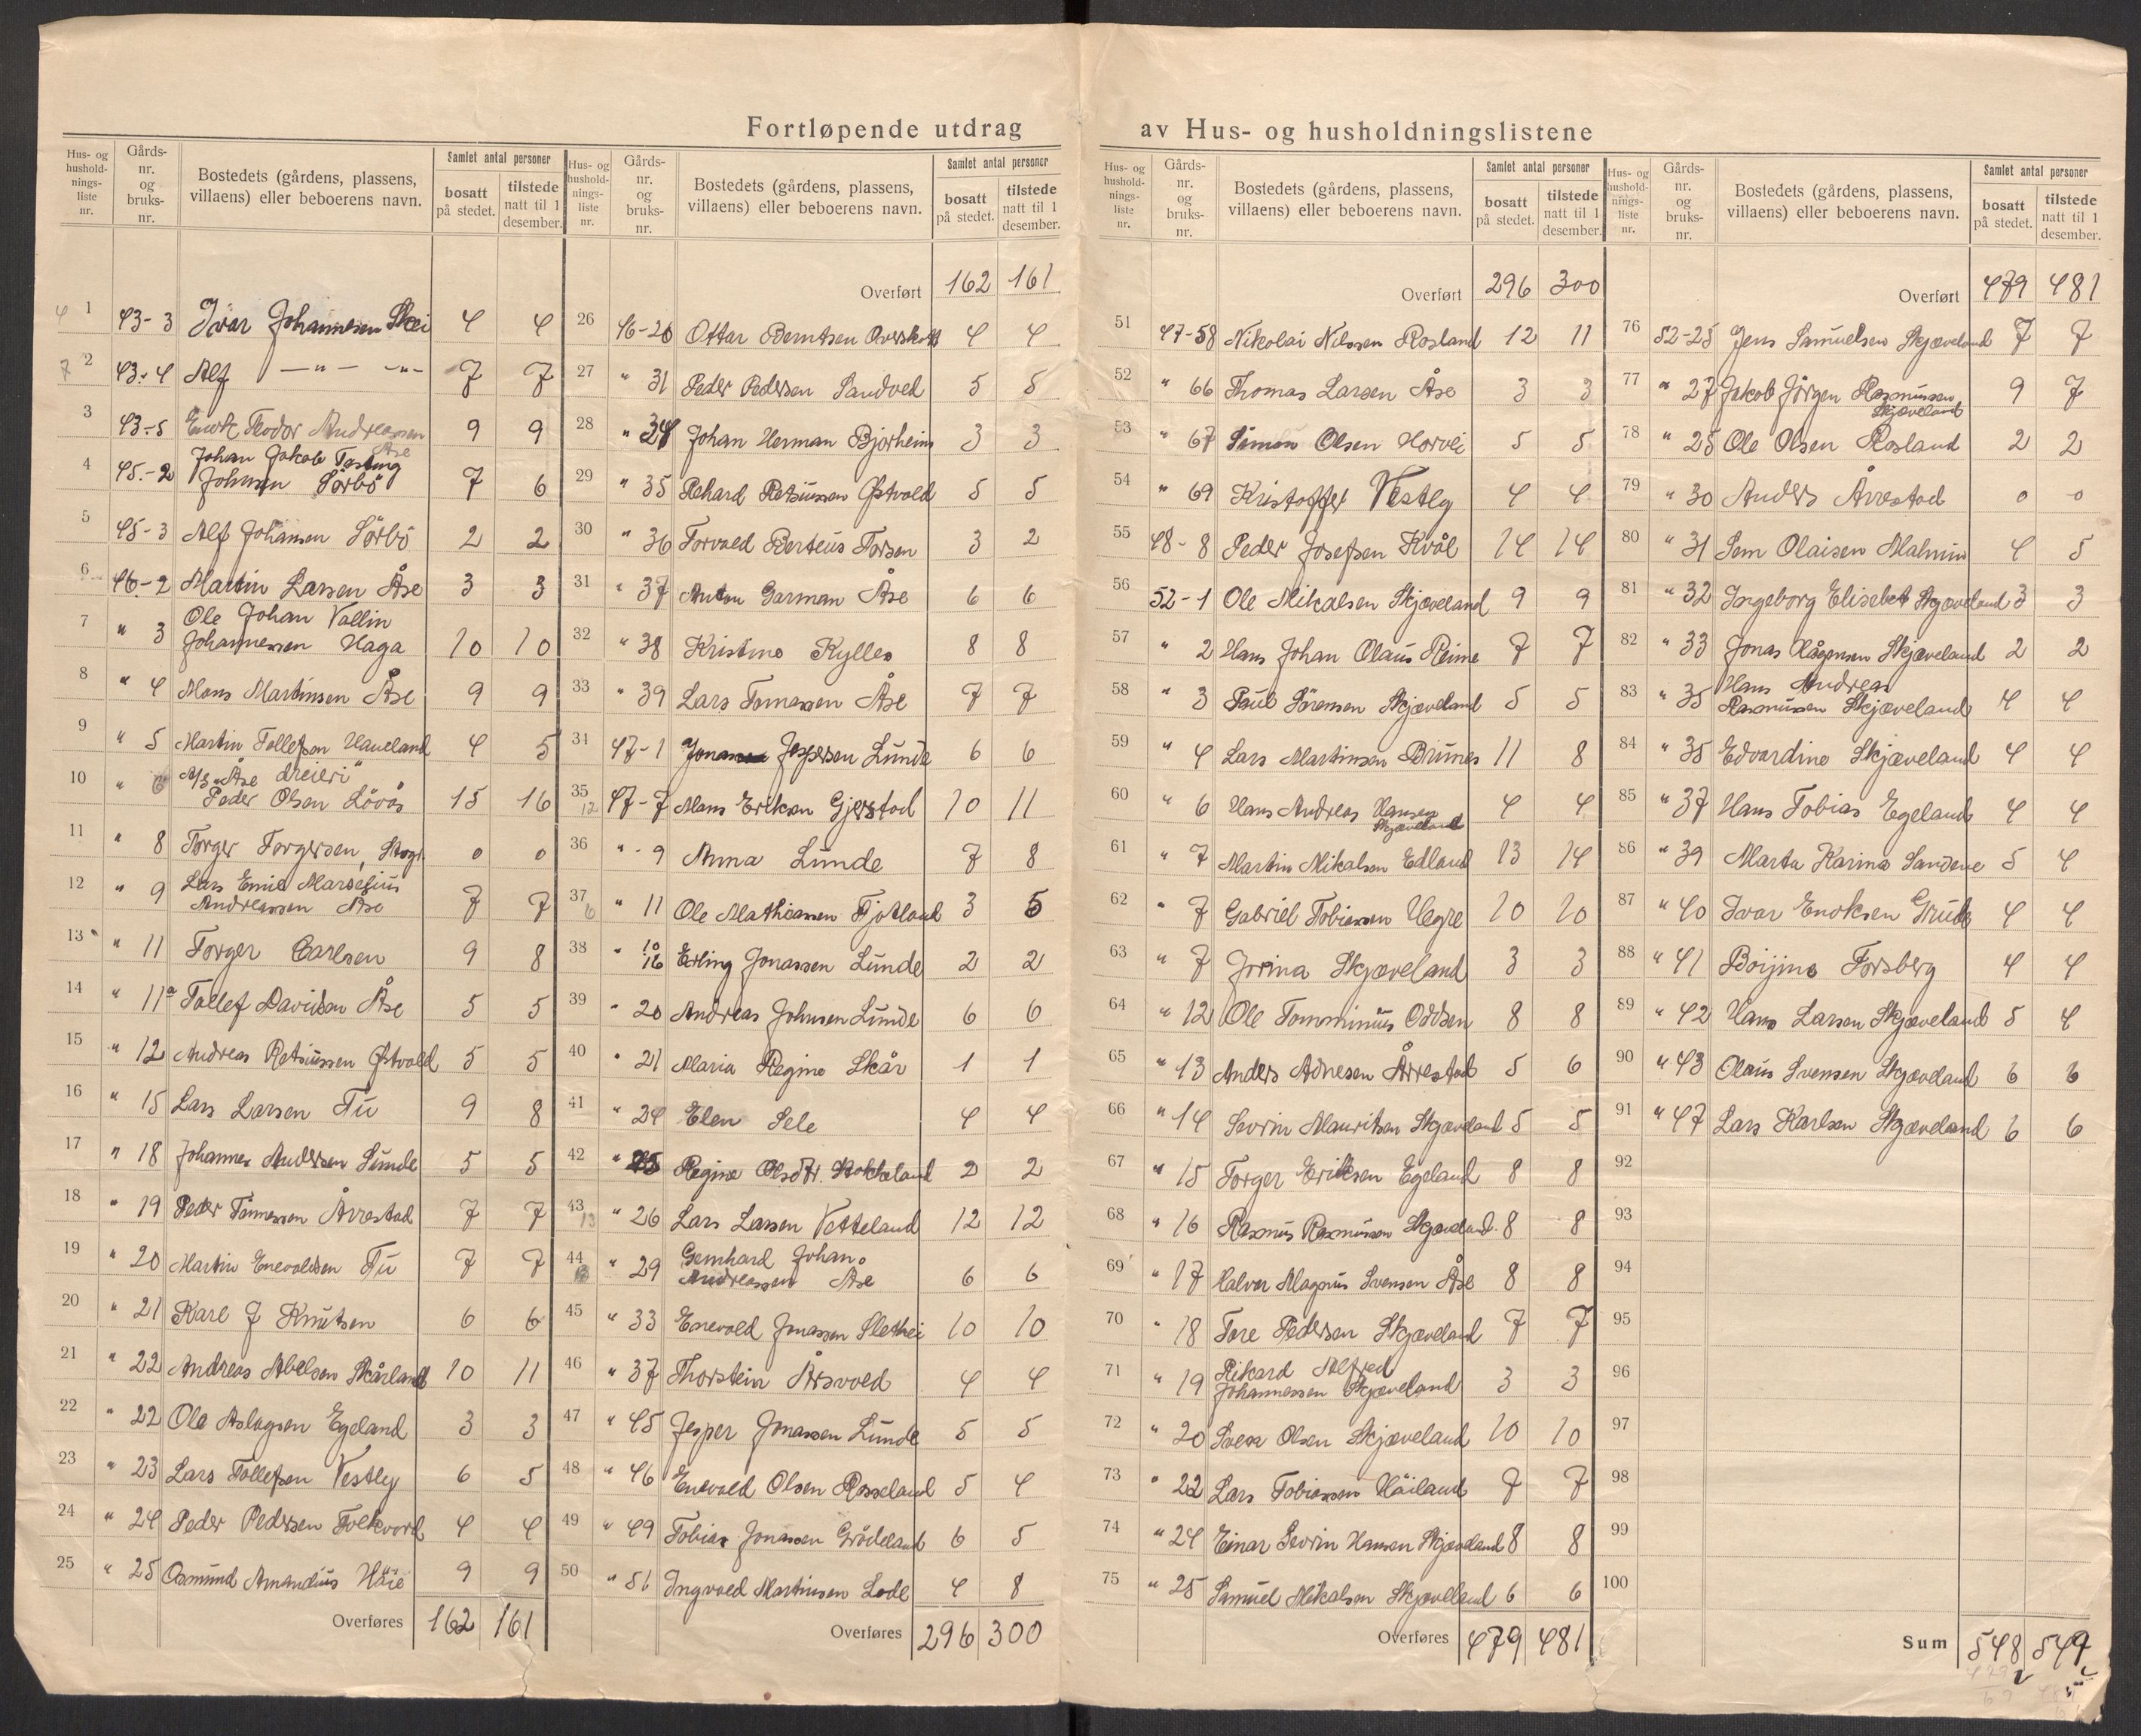 Fortløpende utdrag av Hus- og husholdningslistene
Hus- og husholdnings- liste nr. | Gårds- nr. og bruks- nr. | Bostedets (gårdens, plassens, villaens) eller beboerens navn. | Samlet antal personer | bosatt på stedet. | tilstede natt til 1 desember.
1 43-3 Ivar Johannesen Skei 4 4
2 43-4 Alf —"— —"— 7 7
3 43-5 Enok Teodor Andreassen Åse 9 9
4 45-2 Johan Jakob Tasting
Johnsen Sørbø 7 6
5 45-3 Alf Johansen Sörbö 2 2
6 46-2 Martin Larsen Åse 3 3
7 " 3 Ole Johan Vallin
Johannessen Haga 10 10
8 " 4 Mons Martinsen Åse 9 9
9 " 5 Martin Tollefsen Haveland 4 5
10 " 6 A/S "Åse dreieri"
Peder Olsen Lövås 15 16
11 " 8 Torger Torgersen, Skogs 0 0
12 " 9 Lars Emil Marselius
Andreassen Åse 7 7
13 " 11 Torger Carlsen 9 8
14 " 11a Tollef Davidsen Åse 5 5
15 " 12 Andreas Retsiussen Østvold 5 5
16 " 15 Lars Larsen Tu 9 8
17 " 18 Johannes Andersen Lunde 5 5
18 " 19 Peder Tønnessen Årrestad 7 7
19 " 20 Martin Enevoldsen Tu 7 7
20 " 21 Karl J Knutsen 6 6
21 " 22 Andreas Abelsen Skårland 10 11
22 " 22 Ole Aslagsen Egeland 3 3
23 " 23 Lars Tollefsen Vestly 6 5
24 " 24 Peder Pedersen Folkvord 4 4
25 " 25 Osmund Amandius Høie 9 9
Overføres 162 161
Hus- og husholdnings- liste nr. | Gårds- nr. og bruks- nr. | Bostedets (gårdens, plassens, villaens) eller beboerens navn. | Samlet antal personer | bosatt på stedet. | tilstede natt til 1 desember.
Overført 162 161
26 46-26 Ottar Berntsen 4 4
27 " 31 Peder Pedersen Sandved 5 5
28 " 34 Johan Herman Bjorheim 3 3
29 " 35 Rikard Retsiussen Østvold 5 5
30 " 36 Torvald Berteus Torsen 3 2
31 " 37 Anton Garman Åse 6 6
32 " 38 Kristine Kylles 8 8
33 " 39 Lars Tomassen Åse 7 7
34 47-1 Jonas Jespersen Lunde 6 6
35 47-7 Mons Eriksen Gjerstad 10 11
36 " 9 Anna Lunde 7 8
37 " 11 Ole Mathiassen Fjotland 3 5
38 " 10 16 Erling Jonassen Lunde 2 2
39 " 20 Andreas Johnsen Lunde 6 6
40 " 21 Maria Regine Skår 1 1
41 " 24 Elen Sele 4 4
42 " 25 Regine Olsdtr. Stokkeland 2 2
43 " 26 Lars Larsen Vetteland 12 12
44 " 29 Gernhard Johan
Andreassen Åse 6 6
45 " 33 Enevold Jonassen Slethei 10 10
46 " 37 Thorstein Årsvoll 4 4
47 " 45 Jesper Jonassen Lunde 5 5
48 " 46 Enevold Olsen Rosseland 5 4
49 " 49 Tobias Jonassen Grödeland 6 5
50 " 51 Ingvald Martinsen Lode 4 8
Overføres 296 300
Hus- og husholdnings- liste nr. | Gårds- nr. og bruks- nr. | Bostedets (gårdens, plassens, villaens) eller beboerens navn. | Samlet antal personer | bosatt på stedet. | tilstede natt til 1 desember.
Overført 296 300
51 47-58 Nikolai Nilssen Rosland 12 11
52 " 66 Thomas Larsen Åse 3 3
53 " 67 Simon Olsen Horvei 5 5
54 " 69 Kristoffer Vestly 4 4
55 48-8 Peder Josefsen Kvål 14 14
56 52-1 Ole Mikalsen Skjæveland 9 9
57 " 2 Hans Johan Olaus Reime 7 7
58 " 3 Paul Sörensen Skjæveland 5 5
59 " 4 Lars Martinsen Brunes 11 8
60 " 6 Hans Andreas Hansen
Skjæveland 4 4
61 " 7 Martin Mikalsen Edland 13 14
62 " 7 Gabriel Tobiassen Hegre 10 10
63 " 7 Jorina Skjæveland 3 3
64 " 12 Ole Tomminius Oddsen 8 8
65 " 13 Anders Adnesen Årrestad 5 6
66 " 14 Sevrin Mauritsen Skjæveland 5 5
67 " 15 Torger Eriksen Egeland 8 8
68 " 16 Rasmus Rasmussen Skjæveland 8 8
69 " 17 Halvor Magnus Svensen Åse 8 8
70 " 18 Tore Pedersen Skjæveland 7 7
71 " 19 Rikard Alfred
Johannessen Skjæveland 3 3
72 " 20 Svein Olsen Skjæveland 10 10
73 " 22 Lars Tobiassen Håiland 7 7
74 " 24 Einar Sevrin Hansen Skjæveland 8 8
75 " 25 Samuel Mikalsen Skjæveland 6 6
Overføres 479 481
Hus- og husholdnings- liste nr. | Gårds- nr. og bruks- nr. | Bostedets (gårdens, plassens, villaens) eller beboerens navn. | Samlet antal personer | bosatt på stedet. | tilstede natt til 1 desember.
Overført 479 481
76 52-25 Jens Samuelsen Skjæveland 7 7
77 " 27 Jakob Jörgen Rasmussen
Skjæveland 9 7
78 " 25 Ole Olsen Rosland 2 2
79 " 30 Anders Årrestad 0 0
80 " 31 Sem Olaisen Malmin 4 5
81 " 32 Ingeborg Elisabet Skjæveland 3 3
82 " 33 Jonas Skjæveland 2 2
83 " 35 Hans Andreas
Rasmussen Skjæveland 4 4
84 " 35 Edvardine Skjæveland 4 4
85 " 37 Hans Tobias Egeland 4 4
86 " 39 Marta Karina Sandene 5 4
87 " 40 Ivar Enoksen Grude 4 4
88 " 41 Borjina Forsberg 4 4
89 " 42 Hans Larsen Skjæveland 5 4
90 " 43 Olaus Svensen Skjæveland 6 6
91 " 47 Lars Karlsen Skjæveland 6 6
92
93
94
95
96
97
98
99
100
Sum 548 549